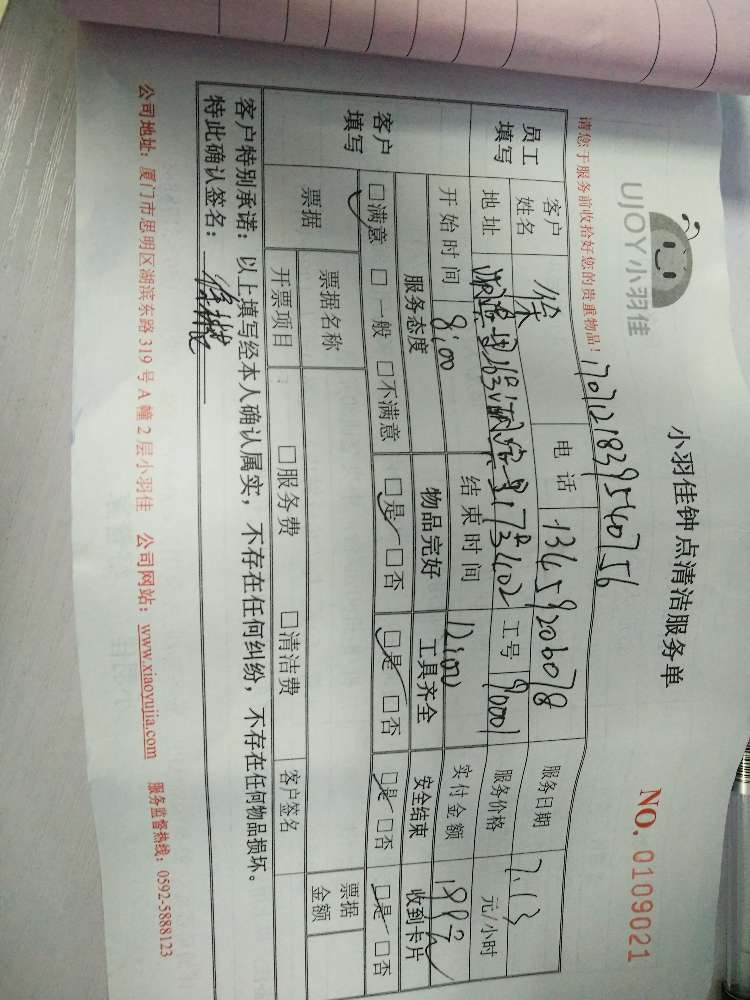 UJOY小羽佳
小羽佳钟点清洁服务单
NO. 0109021
请您于服务前收拾好您的贵重物品!
1707121839540756
员工填写
客户姓名 徐 电话 13459206078 服务日期 7.13
地址 工号 90001 服务价格 元/小时
开始时间 8:00 结束时间 12:00 实付金额
客户填写
服务态度 物品完好 工具齐全 安全结束 收到卡片
□满意 □一般 □不满意 □是 □否 □是 □否 □是 □否 □是 □否
票据 票据名称 票据金额
开票项目 □服务费 □清洁费 客户签名
客户特别承诺:以上填写经本人确认属实,不存在任何纠纷,不存在任何物品损坏。
特此确认签名:
公司地址:厦门市思明区湖滨东路319号A幢2层小羽佳 公司网站:www.xiaoyujia.com 服务监督热线:0592-5888123